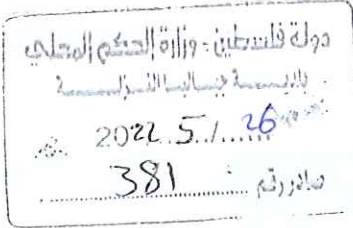 دولة فلسطين - وزارة الحكم المحلي
2022 / 5 / 26
صادر رقم : 381